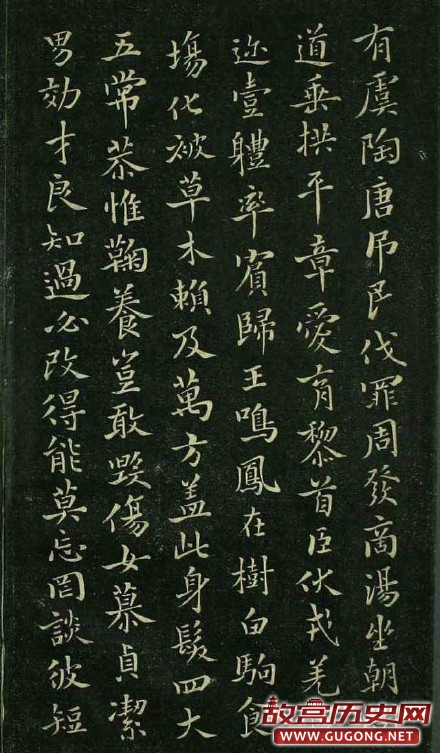 有虞陶唐吊民伐罪周發商湯坐朝
道垂拱平章愛育黎首臣伏戎羌
迩壹體率賓歸王鳴鳳在樹白駒食
塲化被草木賴及萬方盖此身髮四大
五常恭惟鞠養豈敢毀傷女慕貞潔
男効才良知過必改得能莫忘罔談彼短
故宫历史网
WWW.GUGONG.NET